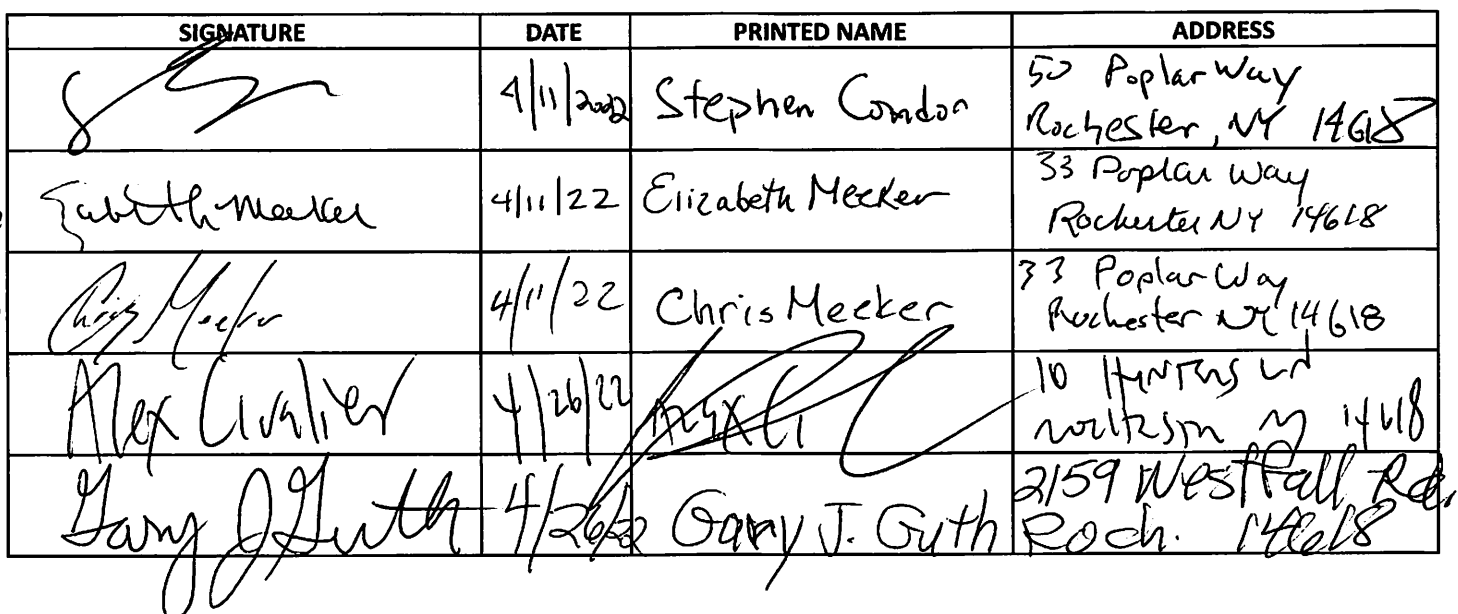 SIGNATURE DATE PRINTED NAME ADDRESS
4/11/2022 Stephen Condon 50 Poplar Way
Rochester, NY 14618
Elizabeth Meeker 4/11/22 Elizabeth Meeker 33 Poplar Way
Rochester NY 14618
Chris Meeker 4/11/22 Chris Meeker 33 Poplar Way
Rochester NY 14618
Alex Civalier 4/26/22 10
14618
Gary J Guth 4/26/22 Gary J. Guth 2159 Westfall Rd.
Roch. 14618